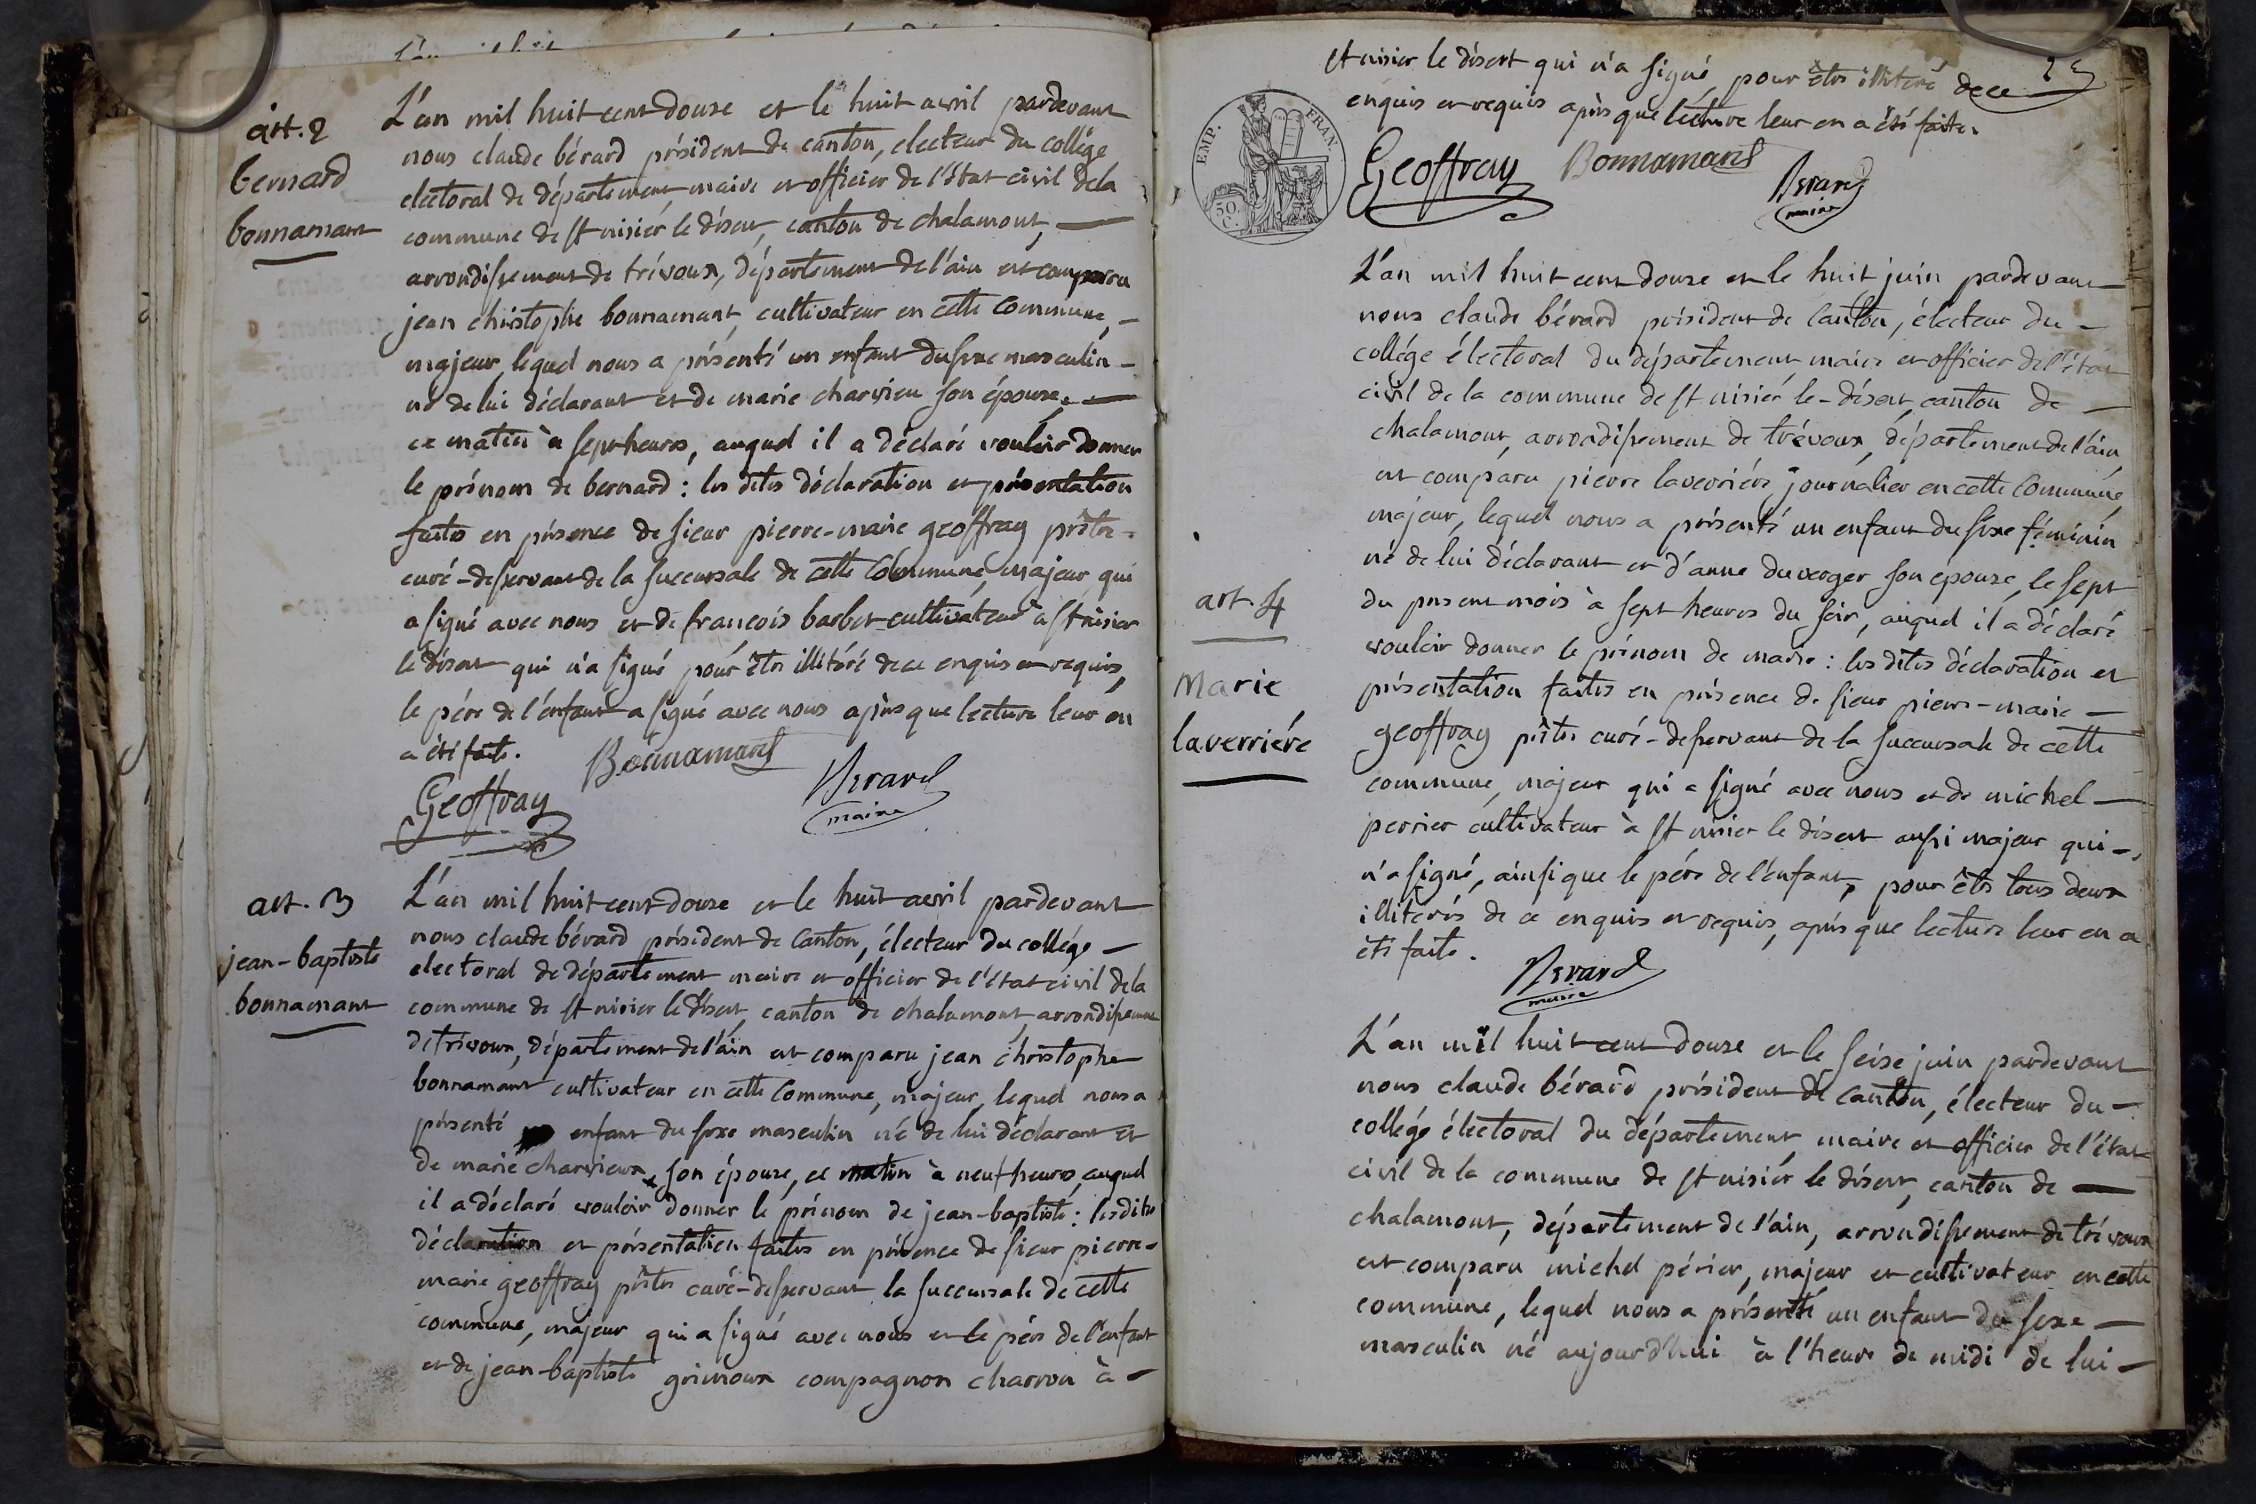 art. 2
bernard
bonnamant
L'an mil huit cent douze et le huit avril pardevant
nous claude bérard président de canton, electeur du collége
electoral de département maire et officier de l'état civil dela
commune de st nisiér le désert, canton de chalamont, —
arrondissement de trévoux, département de l'ain est comparu
jean christophe bonnamant, cultivateur en cette commune, —
majeur lequel nous a présenté un enfant du sexe masculin —
né de lui déclarant et de marie charvieu son épouse, —
ce matin à sept heures, auquel il a déclaré vouloir donner
le prénom de bernard : les dites déclaration et présentation
faites en présence de sieur pierre-marie geoffray prêtre -
curé-desservant de la succursale de cette commune, majeur qui
a signé avec nous et de francois barbet cultivateur à st nisier
le désert qui n'a signé pour être illitéré de ce enquis et requis,
le pére de l'enfant a signé avec nous après que lecture leur en
a été faite.
Bonnamant
Geoffray
Berard
maire
art. 3
jean-baptiste
bonnamant
L'an mil huit cent douze et le huit avril pardevant
nous claude bérard président de canton, électeur du collége —
electoral de département maire et officier de l'état civil dela
commune de st nisier le désert, canton de chalamont, arrondissement
de trévoux, département de l'ain est comparu jean christophe
bonnamant cultivateur en cette commune, majeur, lequel nous a
présenté enfant du sexe masculin né de lui déclarant et
de marie charvieux son épouse, ce matin à neuf heures, auquel
il a déclaré vouloir donner le prénom de jean-baptiste : les dites
déclaration et présentation faites en présence de sieur pierre-
marie geoffray prêtre curé-desservant la succursale de cette
commune, majeur qui a signé avec nous et le pére de l'enfant
et de jean-baptiste grimoux compagnon charron à —
25
st nisier le désert qui n'a signé, pour être illitéré de ce
enquis et requis après que lécture leur en a été faite.
EMP. FRAN.
50.
C.
Geoffray
Bonnamant
Berard
maire
L'an mil huit cent douze et le huit juin pardevant
nous claude bérard président de canton, électeur du —
collége électoral du département, maire et officier de l'état
civil de la commune de st nisiér le-désert, canton de —
chalamont, arrondissement de trévoux, département de l'ain,
est comparu pierre laverriére, journalier en cette commune,
majeur, lequel nous a présenté un enfant du sexe féminin
né de lui déclarant et d'anne duverger son épouse, le sept
du present mois à sept heures du soir, auquel il a déclaré
vouloir donner le prénom de marie : les dites déclaration et
présentation faites en présence de sieur pierre-marie —
geoffray prêtre curé-desservant de la succursale de cette
commune, majeur qui a signé avec nous et de michel —
perrier cultivateur à st nisier le désert aussi majeur qui —
n'a signé, ainsi que le pére de l'enfant, pour être tous deux
illiterés de ce enquis et requis, après que lecture leur en a
été faite.
art. 4
Marie
laverriére
Berard
maire
L'an mil huit cent douze et le seize juin pardevant
nous claude bérard président de canton, électeur du —
collége électoral du département, maire et officier de l'état
civil de la commune de st nisiér le désert, canton de —
chalamont, département de l'ain, arrondissement de trévoux
est comparu michel périer, majeur et cultivateur en cette
commune, lequel nous a présenté un enfant du sexe —
masculin né aujourd'hui à l'heure de midi de lui —